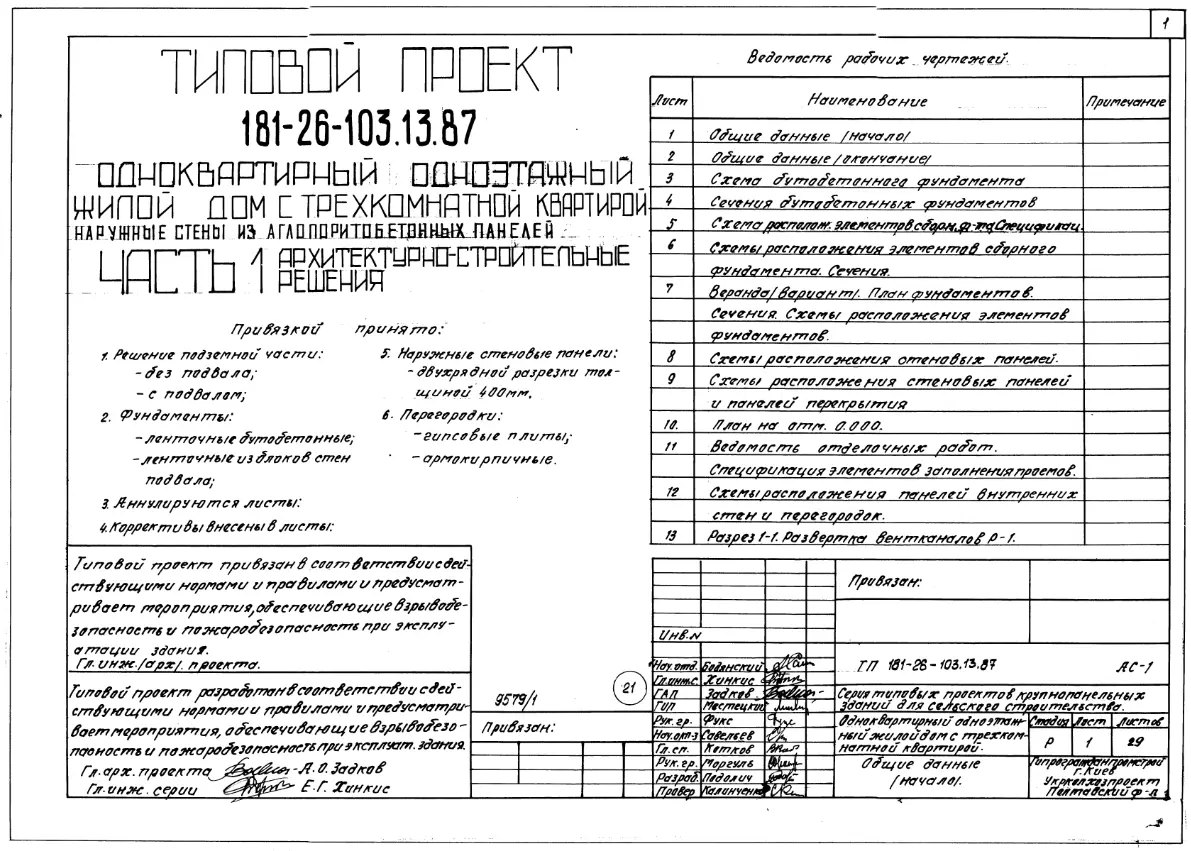 1
ТИПОВОЙ ПРОЕКТ
181-26-103.13.87
ОДНОКВАРТИРНЫЙ ОДНОЭТАЖНЫЙ
ЖИЛОЙ ДОМ С ТРЕХКОМНАТНОЙ КВАРТИРОЙ
НАРУЖНЫЕ СТЕНЫ ИЗ АГЛОПОРИТОБЕТОННЫХ ПАНЕЛЕЙ
ЧАСТЬ 1 АРХИТЕКТУРНО-СТРОИТЕЛЬНЫЕ
РЕШЕНИЯ
Привязкой принято:
1. Решение подземной части:
- без подвала;
- с подвалом;
2. Фундаменты:
- ленточные бутобетонные;
- ленточные из блоков стен
подвала;
3. Аннулируются листы:
4. Коррективы внесены в листы:
5. Наружные стеновые панели:
- двухрядной разрезки тол-
щиной 400мм.
6. Перегородки:
- гипсовые плиты;
- армокирпичные.
Типовой проект привязан в соответствии с дей-
ствующими нормами и правилами и предусмат-
ривает мероприятия, обеспечивающие взрывобе-
зопасность и пожаробезопасность при эксплу-
атации здания.
Гл. инж. /арх/. проекта.
Типовой проект разработан в соответствии с дей-
ствующими нормами и правилами и предусматри-
вает мероприятия, обеспечивающие взрывобезо-
пасность и пожаробезопасность при эксплуат. здания.
Гл. арх. проекта А.О. Задков
Гл. инж. серии Е.Г. Хинкис
9579/1
21
Привязан:
Ведомость рабочих чертежей.
Лист Наименование Примечание
1 Общие данные /начало/
2 Общие данные /окончание/
3 Схема бутобетонного фундамента
4 Сечения бутобетонных фундаментов
5 Схема располож. элементов сборн. ф-та. Спецификац.
6 Схемы расположения элементов сборного
фундамента. Сечения.
7 Веранда /вариант/. План фундаментов.
Сечения. Схемы расположения элементов
фундаментов.
8 Схемы расположения стеновых панелей.
9 Схемы расположения стеновых панелей
и панелей перекрытия
10. План на отм. 0.000.
11 Ведомость отделочных работ.
Спецификация элементов заполнения проемов.
12 Схемы расположения панелей внутренних
стен и перегородок.
13 Разрез 1-1. Развертка вентканалов Р-1.
Привязан:
Инв.N
Нач. отд. Бодянский
Гл.инж.с. Хинкис
ГАП Задков
ГИП Мостецкий
Рук. гр. Фукс
Нач.отд Савельев
Гл. сп. Котков
Рук. гр. Моргуль
Разраб. Подолич
Провер Калинченко
ТП 181-26-103.13.87 АС-1
Серия типовых проектов крупнопанельных
зданий для сельского строительства.
Одноквартирный одноэтаж-
ный жилой дом с трехком-
натной квартирой.
Стадия Лист Листов
Р 1 29
Общие данные
/начало/.
Гипрограждангпромстрой
г. Киев
Укрколхозпроект
Полтавский ф-л